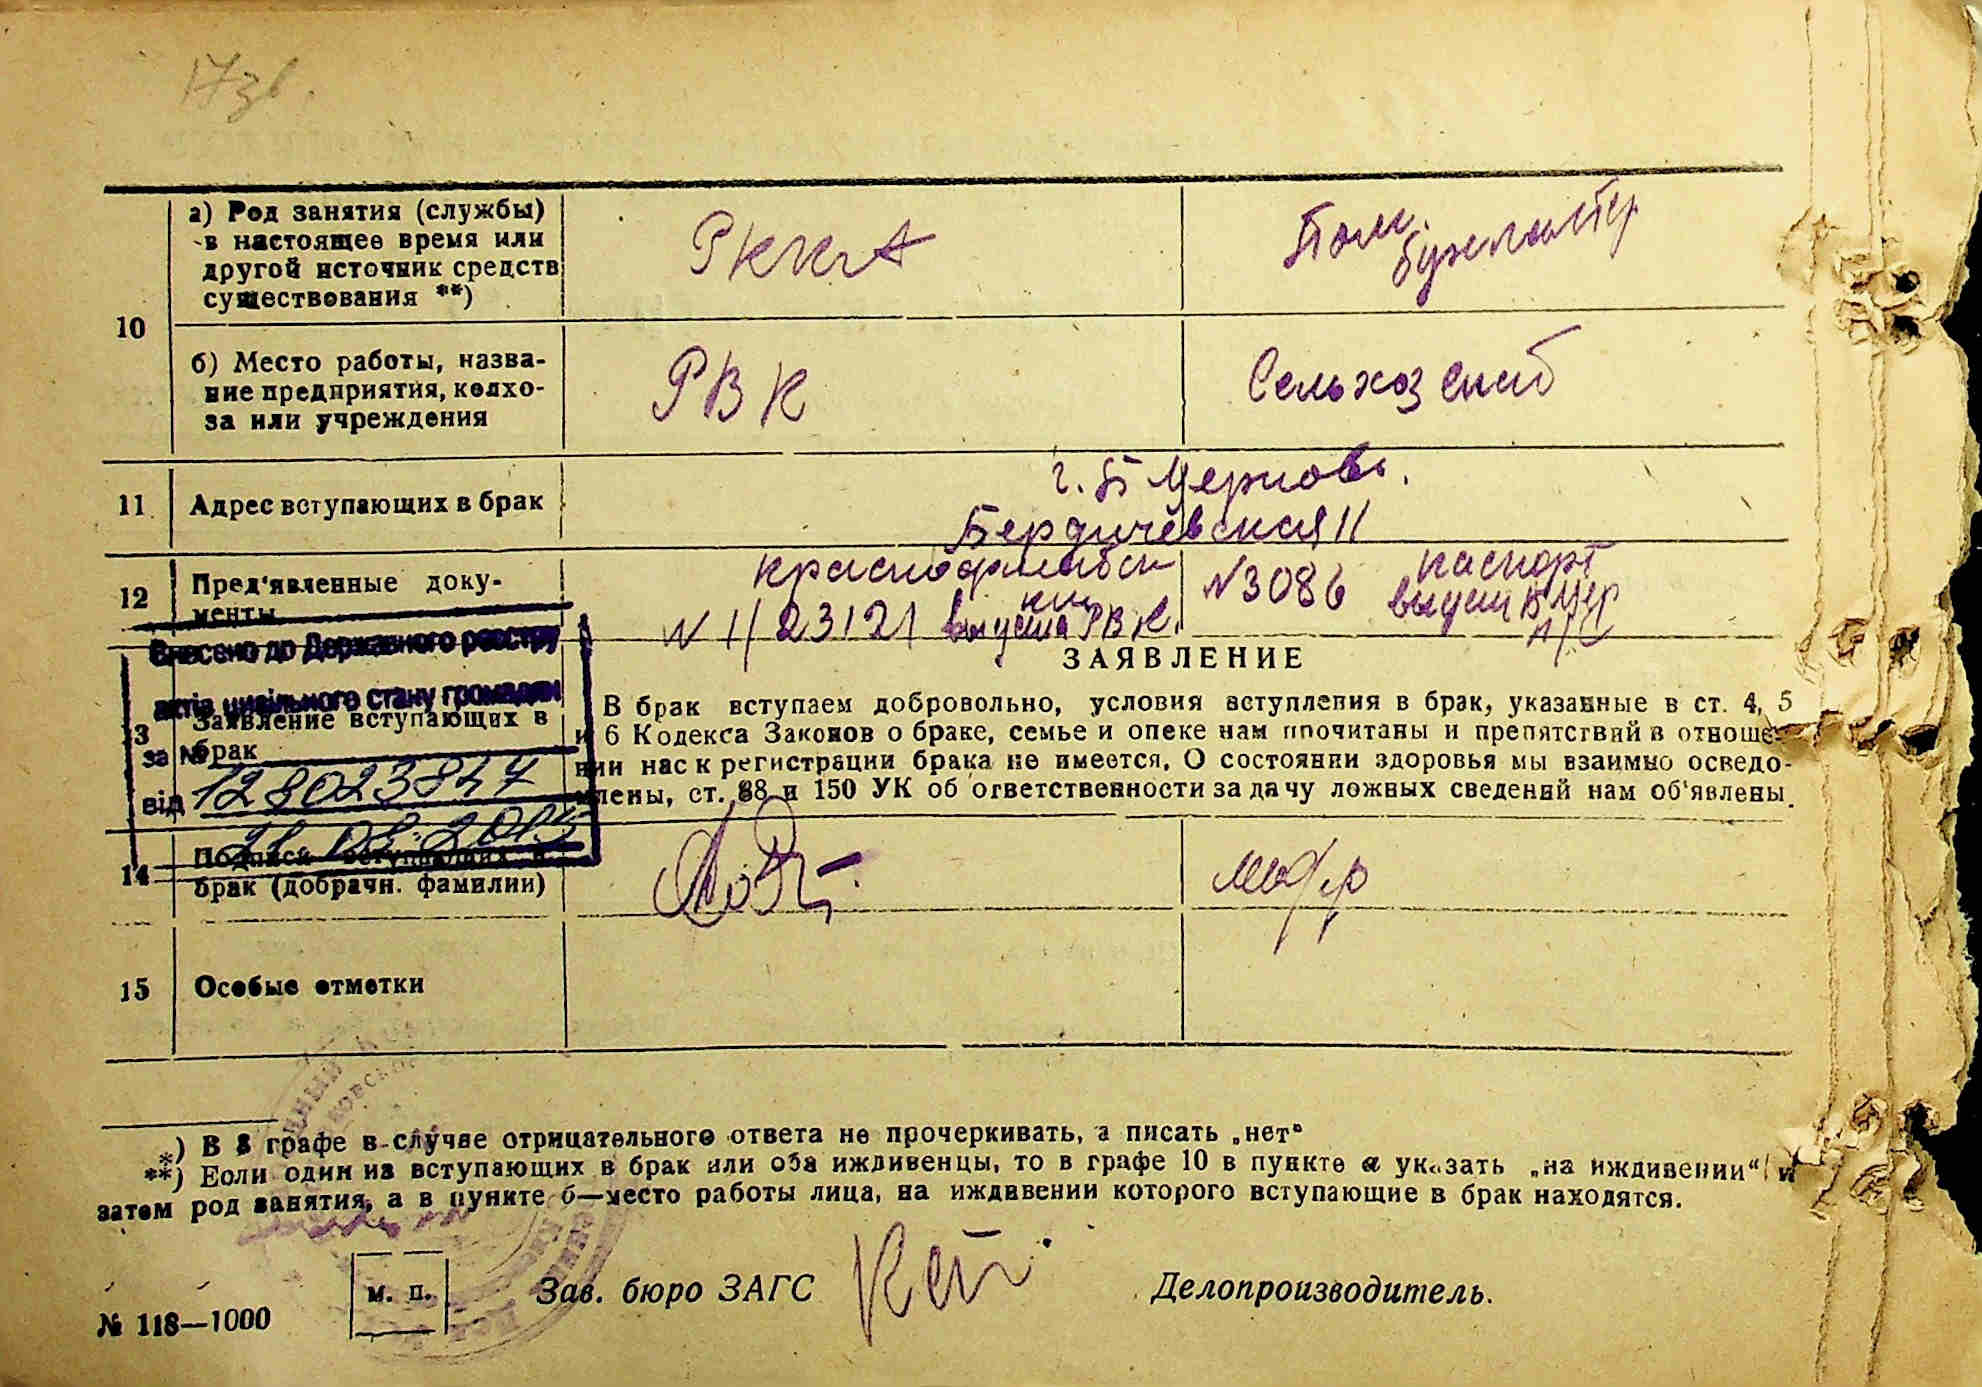 173б.
10
а) Род занятия (службы)
в настоящее время или
другой источник средств
существования **)
РККА
Пом. бухгалтер
б) Место работы, назва-
ние предприятия, колхо-
за или учреждения
РВК
Сельхоз снаб
11
Адрес вступающих в брак
г. Б Церковь.
Бердичевская 11
12
Пред'явленные доку-
менты
красноармейск
кн.
№ 1/23121 выдана РВК.
№3086 паспорт
выдан Б Цер
Внесено до Державного реєстру
актів цивільного стану громадян
за №
128023847
від
13
Заявление вступающих в
брак
ЗАЯВЛЕНИЕ
В брак вступаем добровольно, условия вступления в брак, указанные в ст. 4, 5
и 6 Кодекса Законов о браке, семье и опеке нам прочитаны и препятствий в отноше-
нии нас к регистрации брака не имеется. О состоянии здоровья мы взаимно осведо-
млены, ст. 88 и 150 УК об ответственности за дачу ложных сведений нам об'явлены.
14
Подписи вступающих в
брак (добрачн. фамилии)
15
Особые отметки
*) В 8 графе в случае отрицательного ответа не прочеркивать, а писать „нет“
**) Если один из вступающих в брак или оба иждивенцы, то в графе 10 в пункте а указать „на иждивении“ и
затем род занятия, а в пункте б—место работы лица, на иждивении которого вступающие в брак находятся.
м. п.
Зав. бюро ЗАГС
Делопроизводитель.
№ 118—1000